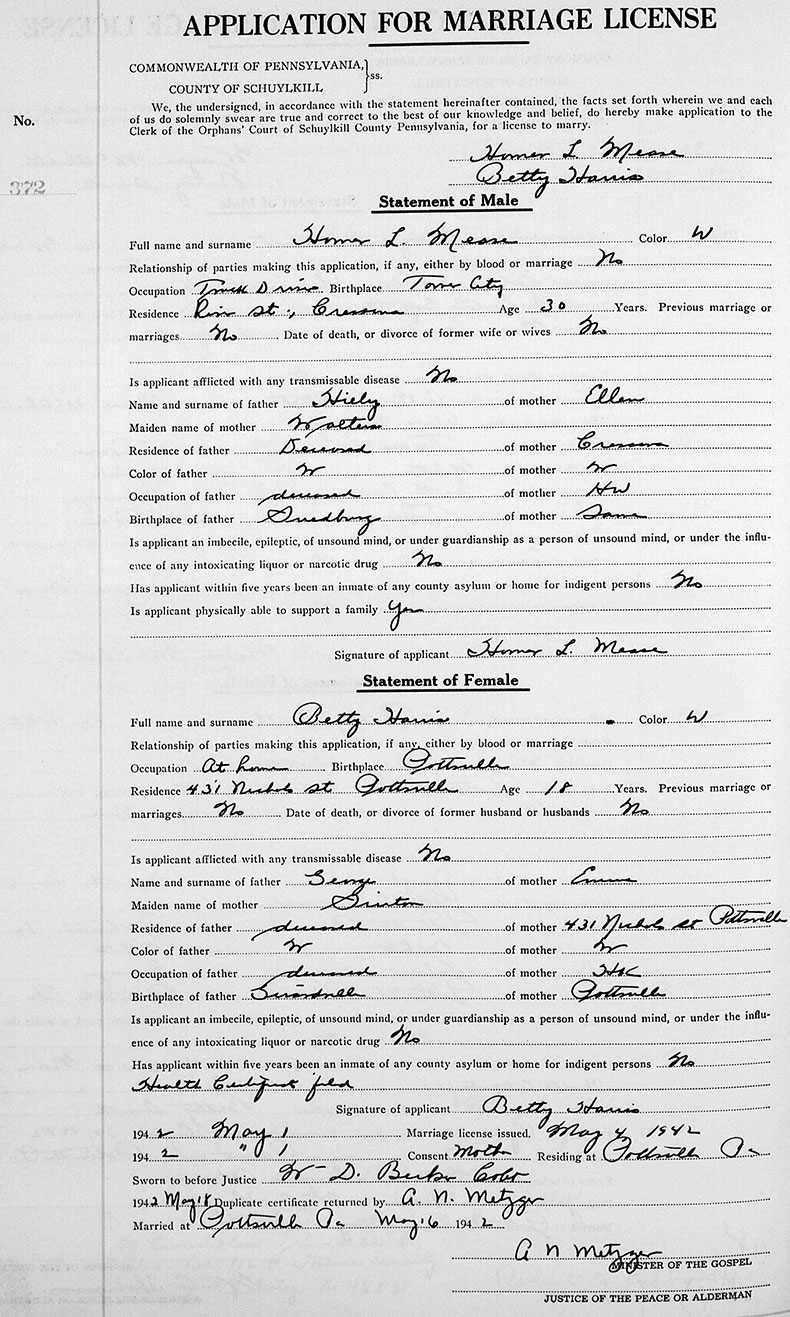 APPLICATION FOR MARRIAGE LICENSE
COMMONWEALTH OF PENNSYLVANIA,
COUNTY OF SCHUYLKILL } ss.
We, the undersigned, in accordance with the statement hereinafter contained, the facts set forth wherein we and each
of us do solemnly swear are true and correct to the best of our knowledge and belief, do hereby make application to the
Clerk of the Orphans' Court of Schuylkill County Pennsylvania, for a license to marry.
No.
Homer L. Mease
372
Betty Harris
Statement of Male
Full name and surname Homer L. Mease Color W
Relationship of parties making this application, if any, either by blood or marriage No
Occupation Truck Driver Birthplace Tower City
Residence St., Cressona Age 30 Years. Previous marriage or
marriages No Date of death, or divorce of former wife or wives No
Is applicant afflicted with any transmissable disease No
Name and surname of father of mother Ellen
Maiden name of mother Walters
Residence of father Deceased of mother Cressona
Color of father W of mother W
Occupation of father deceased of mother HW
Birthplace of father Suedburg of mother Same
Is applicant an imbecile, epileptic, of unsound mind, or under guardianship as a person of unsound mind, or under the influ-
ence of any intoxicating liquor or narcotic drug No
Has applicant within five years been an inmate of any county asylum or home for indigent persons No
Is applicant physically able to support a family Yes
Signature of applicant Homer L. Mease
Statement of Female
Full name and surname Betty Harris Color W
Relationship of parties making this application, if any, either by blood or marriage
Occupation At home Birthplace Pottsville
Residence 431 Nichols St Pottsville Age 18 Years. Previous marriage or
marriages No Date of death, or divorce of former husband or husbands No
Is applicant afflicted with any transmissable disease No
Name and surname of father George of mother Emma
Maiden name of mother
Residence of father deceased of mother 431 Nichols St Pottsville
Color of father W of mother W
Occupation of father deceased of mother HK
Birthplace of father Girardville of mother Pottsville
Is applicant an imbecile, epileptic, of unsound mind, or under guardianship as a person of unsound mind, or under the influ-
ence of any intoxicating liquor or narcotic drug No
Has applicant within five years been an inmate of any county asylum or home for indigent persons No
Health Certificate filed
Signature of applicant Betty Harris
1942 May 1 Marriage license issued. May 4 1942
1942 " 1 Consent Mother Residing at Pottsville Pa
Sworn to before Justice Wm D. Becker
1942 May 18 Duplicate certificate returned by A. N. Metzger
Married at Pottsville Pa May 16 1942
A N Metzger
MINISTER OF THE GOSPEL
JUSTICE OF THE PEACE OR ALDERMAN